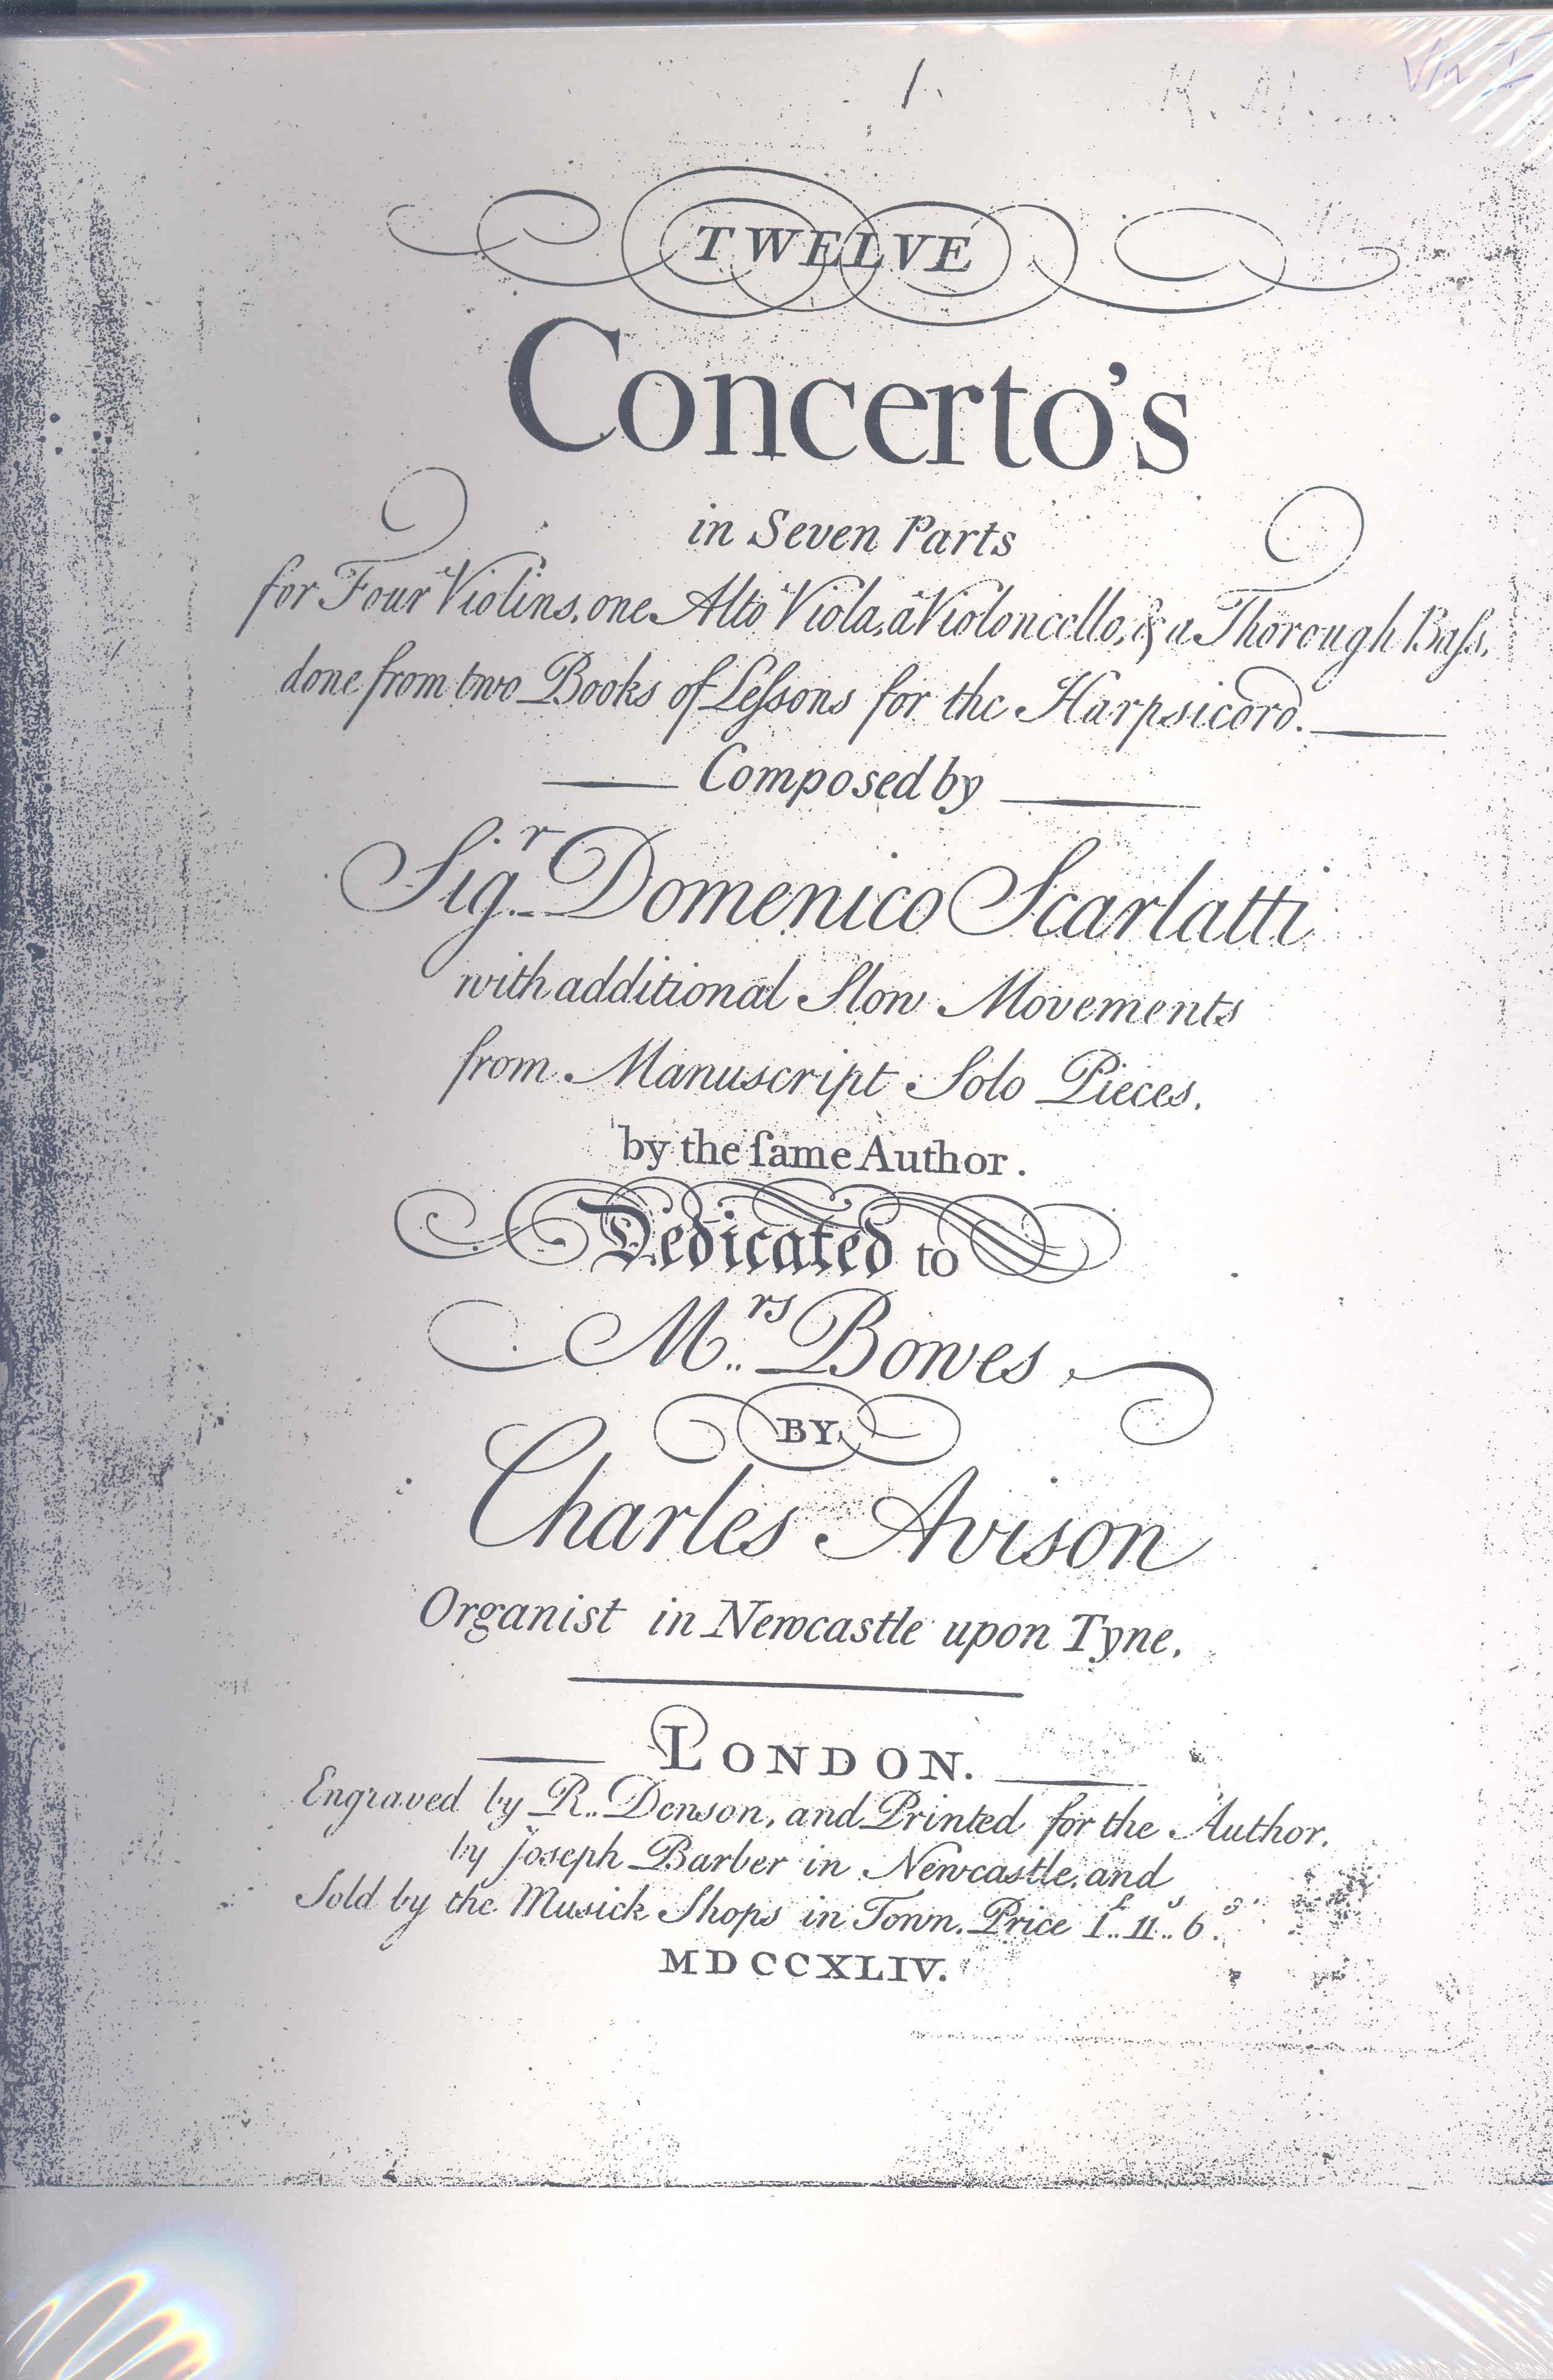 1.
Vln I
TWELVE
Concerto's
in Seven Parts
for Four Violins, one Alto Viola, a Violoncello, & a Thorough Baſs,
done from two Books of Leſsons for the Harpsicord.
Composed by
Sigr. Domenico Scarlatti
with additional Slow Movements
from Manuscript Solo Pieces,
by the ſame Author.
Dedicated to
Mrs Bowes
BY
Charles Avison
Organist in Newcastle upon Tyne.
LONDON.
Engraved by R. Denson, and Printed for the Author,
by Joseph Barber in Newcastle, and
Sold by the Musick Shops in Town. Price 1£.. 11s.. 6d.
MDCCXLIV.